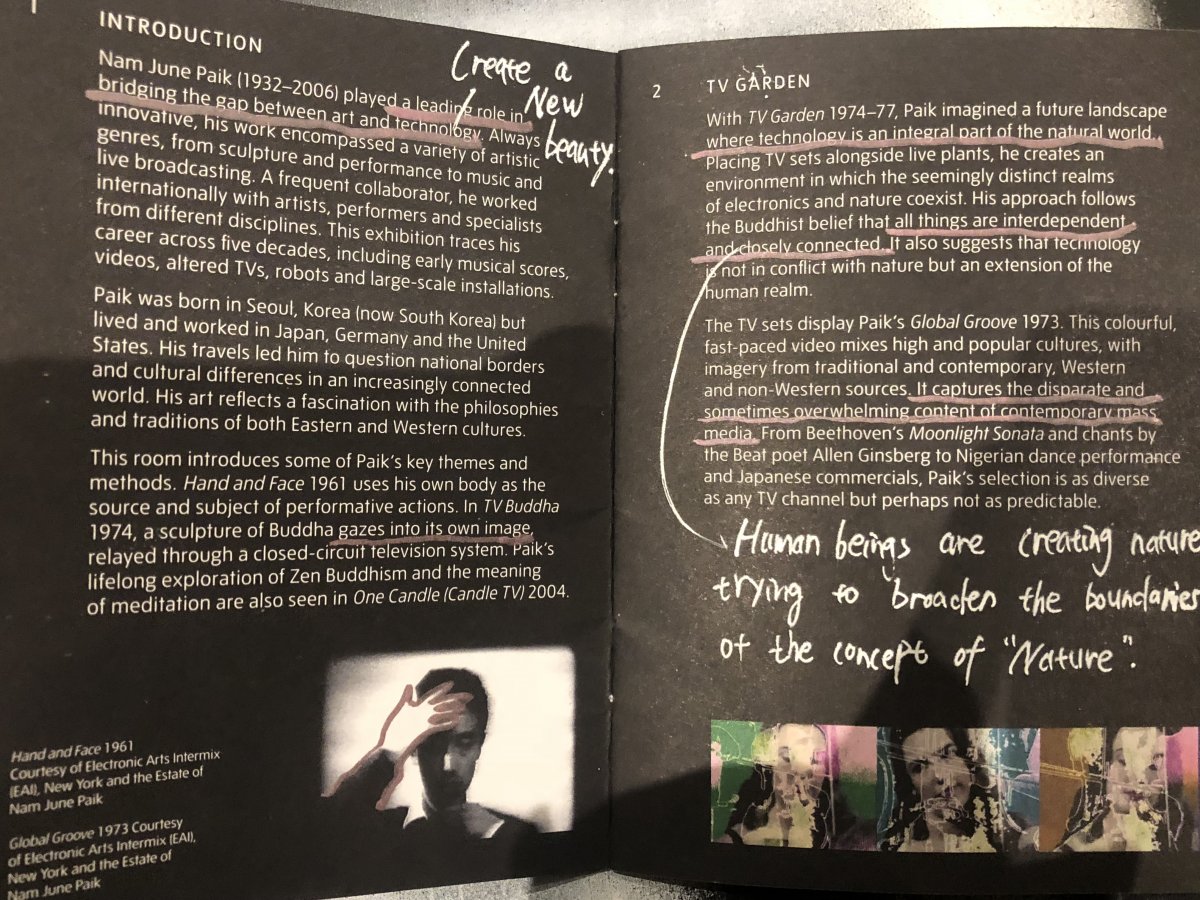 1
INTRODUCTION
Nam June Paik (1932–2006) played a leading role in
bridging the gap between art and technology. Always
innovative, his work encompassed a variety of artistic
genres, from sculpture and performance to music and
live broadcasting. A frequent collaborator, he worked
internationally with artists, performers and specialists
from different disciplines. This exhibition traces his
career across five decades, including early musical scores,
videos, altered TVs, robots and large-scale installations.
Create a
New
beauty.
Paik was born in Seoul, Korea (now South Korea) but
lived and worked in Japan, Germany and the United
States. His travels led him to question national borders
and cultural differences in an increasingly connected
world. His art reflects a fascination with the philosophies
and traditions of both Eastern and Western cultures.
This room introduces some of Paik's key themes and
methods. Hand and Face 1961 uses his own body as the
source and subject of performative actions. In TV Buddha
1974, a sculpture of Buddha gazes into its own image,
relayed through a closed-circuit television system. Paik's
lifelong exploration of Zen Buddhism and the meaning
of meditation are also seen in One Candle (Candle TV) 2004.
Hand and Face 1961
Courtesy of Electronic Arts Intermix
(EAI), New York and the Estate of
Nam June Paik
Global Groove 1973 Courtesy
of Electronic Arts Intermix (EAI),
New York and the Estate of
Nam June Paik
2
TV GARDEN
With TV Garden 1974–77, Paik imagined a future landscape
where technology is an integral part of the natural world.
Placing TV sets alongside live plants, he creates an
environment in which the seemingly distinct realms
of electronics and nature coexist. His approach follows
the Buddhist belief that all things are interdependent
and closely connected. It also suggests that technology
is not in conflict with nature but an extension of the
human realm.
The TV sets display Paik's Global Groove 1973. This colourful,
fast-paced video mixes high and popular cultures, with
imagery from traditional and contemporary, Western
and non-Western sources. It captures the disparate and
sometimes overwhelming content of contemporary mass
media. From Beethoven's Moonlight Sonata and chants by
the Beat poet Allen Ginsberg to Nigerian dance performance
and Japanese commercials, Paik's selection is as diverse
as any TV channel but perhaps not as predictable.
Human beings are creating nature
trying to broaden the boundaries
of the concept of "Nature".